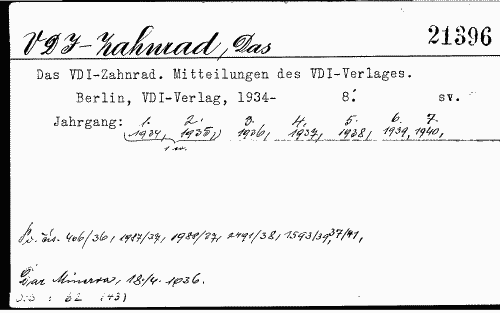 VDI-Zahnrad, Das 21396
Das VDI-Zahnrad. Mitteilungen des VDI-Verlages.
Berlin, VDI-Verlag, 1934- 8. sv.
Jahrgang: 1. 2. 3. 4. 5. 6. 7.
1934, 1935, 1936, 1937, 1938, 1939, 1940,
406/36, 1987/37, 1989/37, 2491/38, 1593/39, 37/41,
Dar Minerva, 18/4. 1936.